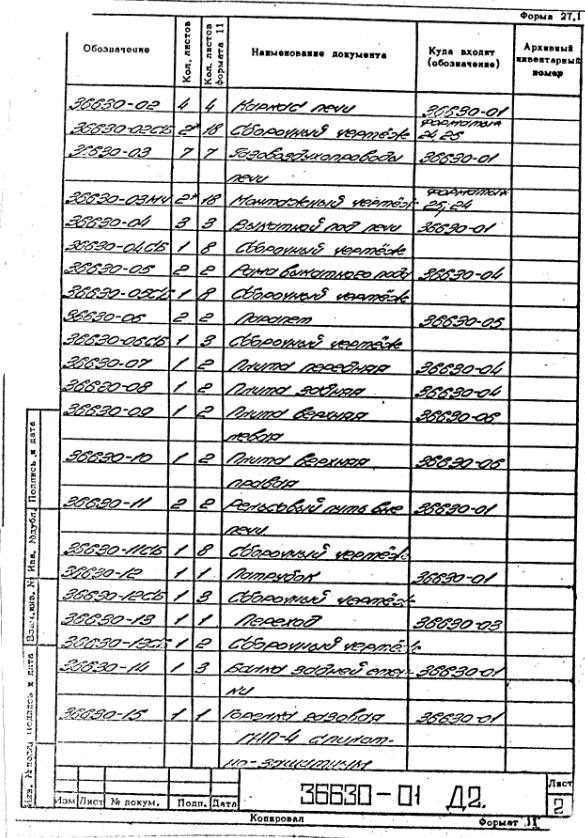 Форма 27.1
Обозначение Кол. листов Кол. листов формата 11 Наименование документа Куда входит (обозначение) Архивный инвентарный номер
36630-02 4 4 Каркас печи 36630-01
36630-02СБ 2* 18 Сборочный чертёж форматы* 24, 25
36630-03 7 7 Газовоздухопроводы 36630-01
печи
36630-03МЧ 2* 18 Монтажный чертёж форматы* 25, 24
36630-04 3 3 Выкатной под печи 36630-01
36630-04СБ 1 8 Сборочный чертёж
36630-05 2 2 Рама выкатного пода 36630-04
36630-05СБ 1 8 Сборочный чертёж
36630-06 2 2 Парапет 36630-05
36630-06СБ 1 3 Сборочный чертёж
36630-07 1 2 Плита передняя 36630-04
36630-08 1 2 Плита задняя 36630-04
36630-09 1 2 Плита верхняя 36630-06
левая
36630-10 1 2 Плита верхняя 36630-06
правая
36630-11 2 2 Рельсовый путь вне 36630-01
печи
36630-11СБ 1 8 Сборочный чертёж
36630-12 1 1 Патрубок 36630-01
36630-12СБ 1 3 Сборочный чертёж
36630-13 1 1 Переход 36630-03
36630-13СБ 1 2 Сборочный чертёж
36630-14 1 3 Балка задней стен- 36630-01
ки
36630-15 1 1 Горелка газовая 36630-01
ГНП-4 с пилот-
но-защитным
Инв. № подл. Подпись и дата Взам. инв. № Инв. № дубл. Подпись и дата
36630-01 Д2.
Лист
2
Изм Лист № докум. Подп. Дата
Копировал Формат 11